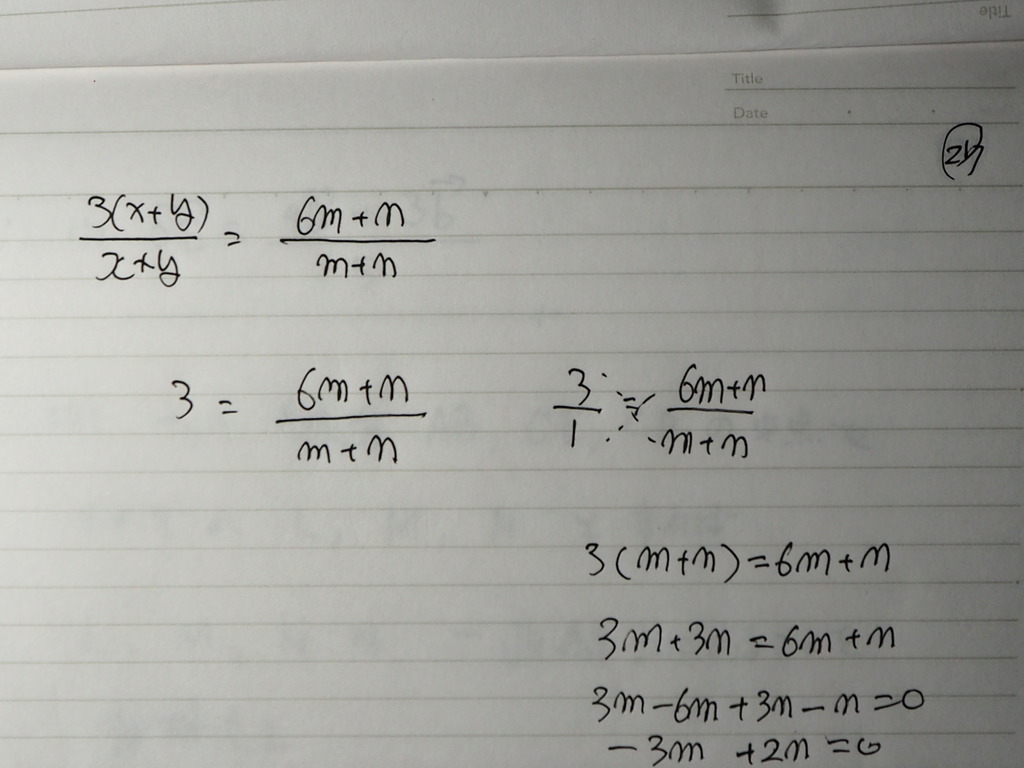 Title
Title
Date
3(x+y)/x+y = 6m+n/m+n
3 = 6m+n/m+n 3/1 = 6m+n/m+n
3(m+n)=6m+n
3m+3n=6m+n
3m-6m+3n-n=0
-3m+2n=0